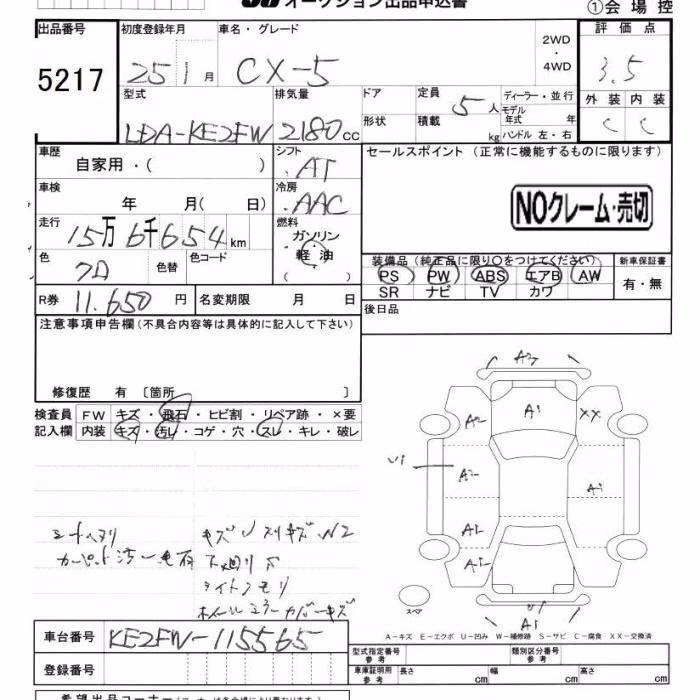 オークション出品申込書
①会場控
出品番号
5217
初度登録年月
25 1 月
車名・グレード
CX-5
2WD
・
4WD
評価点
3.5
外装 内装
C C
型式
LDA-KE2FW
排気量
2180 cc
ドア
形状
定員
5 人
積載
kg
ディーラー・並行
モデル年式 年
ハンドル 左・右
車歴
自家用・( )
シフト
AT
セールスポイント (正常に機能するものに限ります)
車検
年 月( 日)
冷房
AAC
NOクレーム・売切
走行
15万6千654 km
燃料
ガソリン
軽油
色
色替
色コード
装備品 (純正品に限り○をつけてください)
PS PW ABS エアB AW
SR ナビ TV カワ
新車保証書
有・無
R券 11,650 円
名変期限 月 日
後日品
注意事項申告欄 (不具合内容等は具体的に記入して下さい)
修復歴 有 〔箇所 〕
検査員記入欄
FW キズ・飛石・ヒビ割・リペア跡・×要
内装 キズ・汚レ・コゲ・穴・スレ・キレ・破レ
A1
XX
A2
U1
A1
シートヘタリ
ライトクモリ
スペア
A-キズ E-エクボ U-凹み W-補修跡 S-サビ C-腐食 XX-交換済
車台番号 KE2FW-115565
登録番号
型式指定番号 参考
類別区分番号 参考
車庫証明用 参考 長さ cm 幅 cm 高さ cm
希望出品コーナー